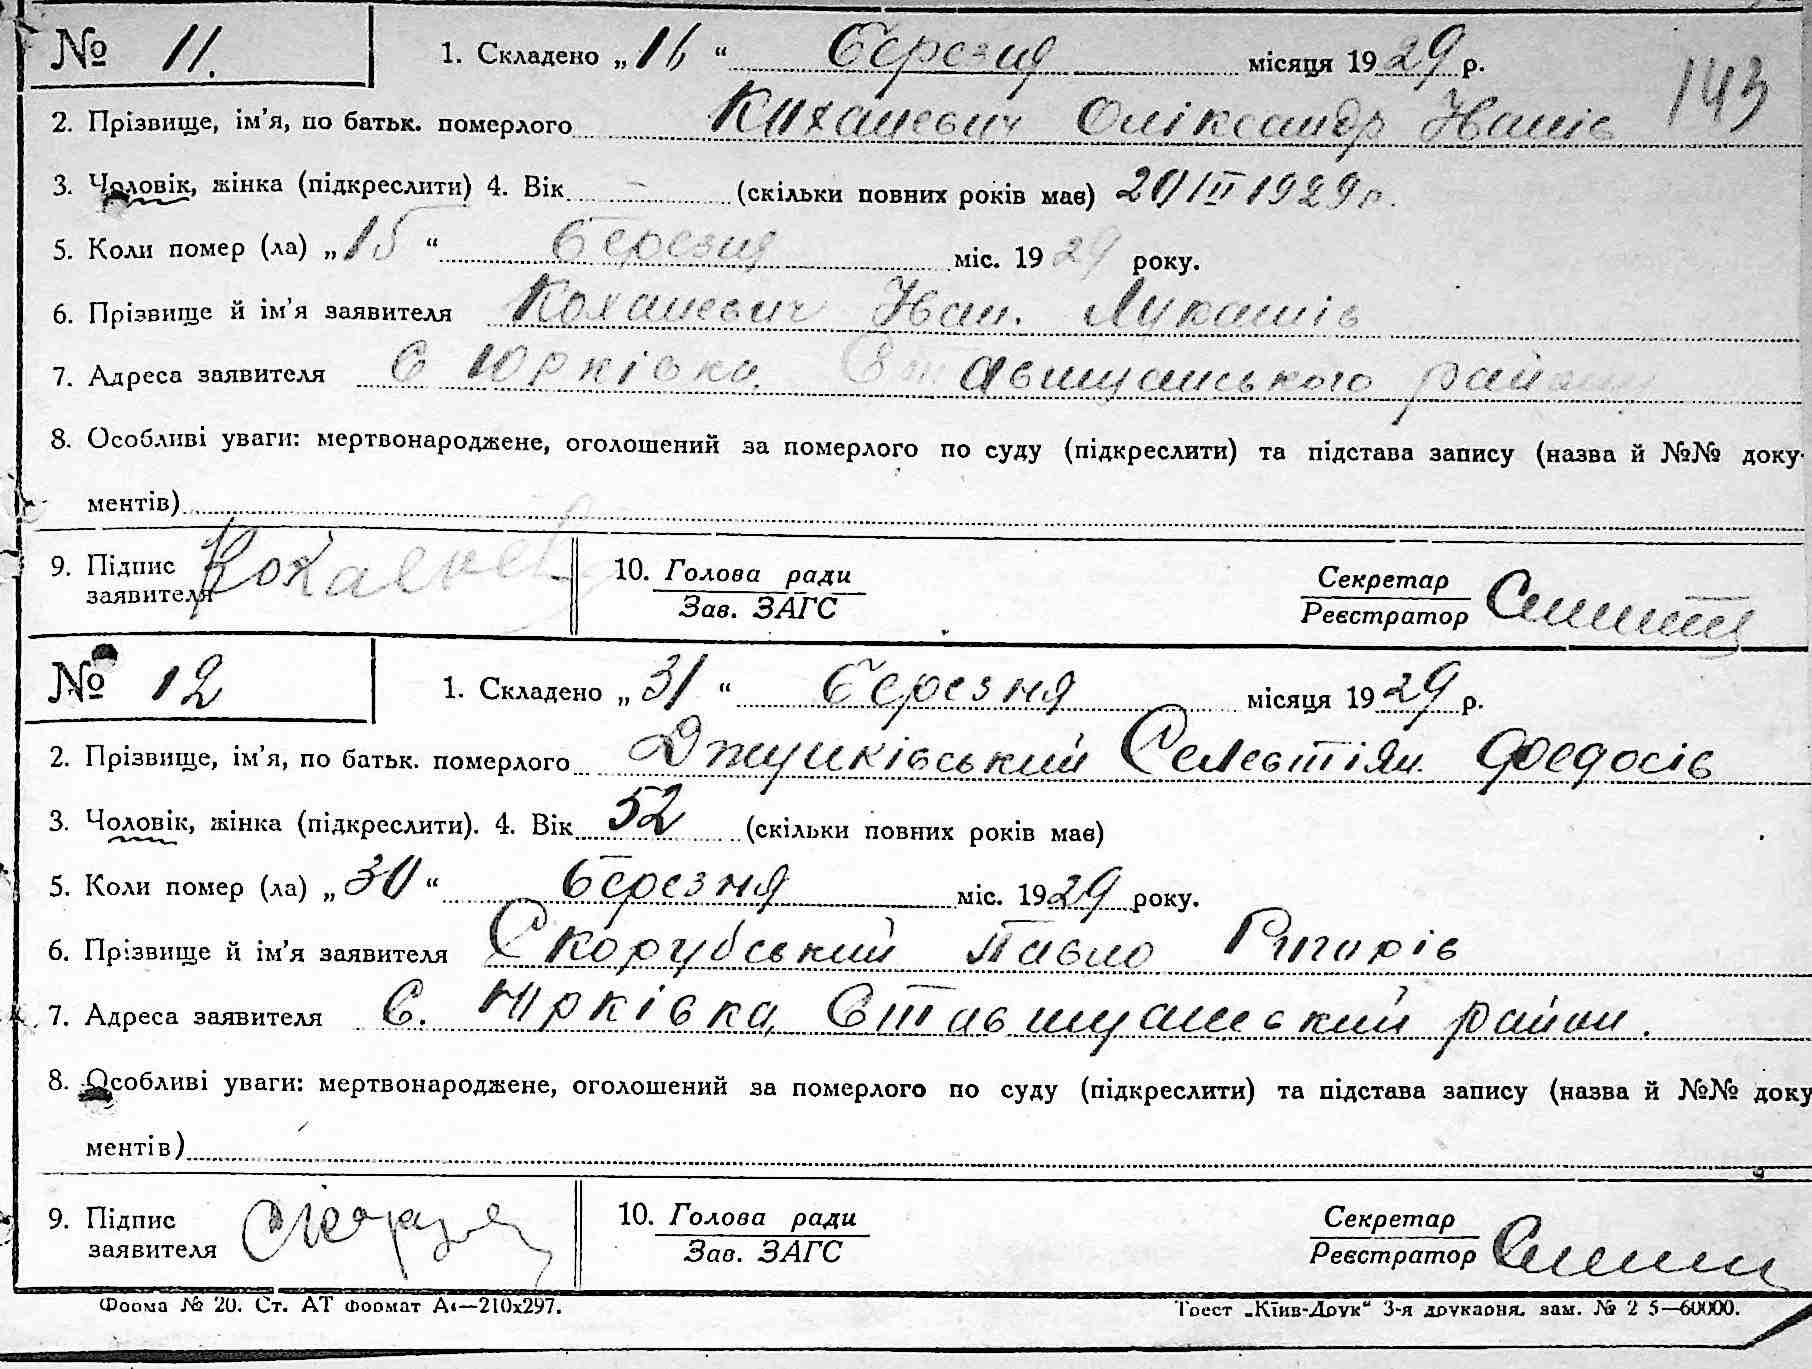 № 11. 1. Складено „16“ Березня місяця 1929 р.
143
2. Прізвище, ім'я, по батьк. померлого Коханевич Олександр Іванів
3. Чоловік, жінка (підкреслити) 4. Вік – (скільки повних років має) 20/II 1929 р.
5. Коли помер (ла) „15“ березня міс. 1929 року.
6. Прізвище й ім'я заявителя Коханевич Іван. Лукашів
7. Адреса заявителя С Юрківка Ставищанського район
8. Особливі уваги: мертвонароджене, оголошений за померлого по суду (підкреслити) та підстава запису (назва й №№ доку-
ментів)
9. Підпис заявителя 10. Голова ради Секретар
Зав. ЗАГС Реєстратор
№ 12 1. Складено „31“ Березня місяця 1929 р.
2. Прізвище, ім'я, по батьк. померлого Джушківський Селевтіян Федосів
3. Чоловік, жінка (підкреслити). 4. Вік 52 (скільки повних років має)
5. Коли помер (ла) „30“ березня міс. 1929 року.
6. Прізвище й ім'я заявителя Скорубський Павло Григорів
7. Адреса заявителя С. Юрківка Ставищанський район.
8. Особливі уваги: мертвонароджене, оголошений за померлого по суду (підкреслити) та підстава запису (назва й №№ доку
ментів)
9. Підпис заявителя 10. Голова ради Секретар
Зав. ЗАГС Реєстратор
Форма № 20. Ст. АТ формат А4—210х297. Трест „Київ-Друк“ 3-я друкарня. зам. № 2 5—60000.